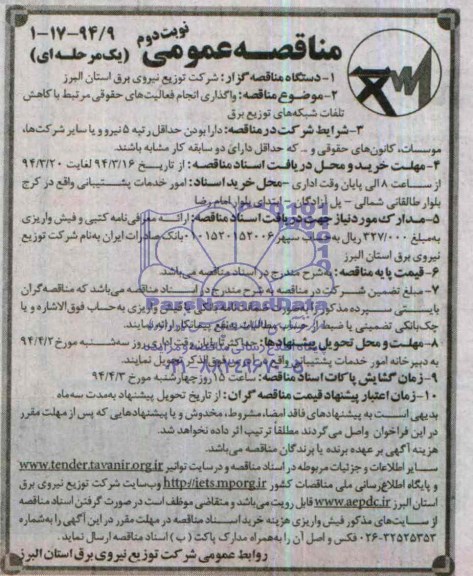 نوبت دوم
۱-۱۷-۹۴/۹
مناقصه عمومی (یک مرحله ای)
۱- دستگاه مناقصه گزار: شرکت توزیع نیروی برق استان البرز
۲- موضوع مناقصه: واگذاری انجام فعالیت‌های حقوقی مرتبط با کاهش
تلفات شبکه‌های توزیع برق
۳- شرایط شرکت در مناقصه: دارا بودن حداقل رتبه ۵ نیرو و یا سایر شرکت‌ها،
موسسات، کانون‌های حقوقی و .. که حداقل دارای دو سابقه کار مشابه باشند.
۴- مهلت خرید و محل دریافت اسناد مناقصه: از تاریخ ۹۴/۳/۱۶ لغایت ۹۴/۳/۲۰
از ساعت ۸ الی پایان وقت اداری - محل خرید اسناد: امور خدمات پشتیبانی واقع در کرج
بلوار طالقانی شمالی - پل آزادگان - ابتدای بلوار امام رضا
۵- مدارک مورد نیاز جهت دریافت اسناد مناقصه: ارائه معرفی نامه کتبی و فیش واریزی
به مبلغ ۳۲۷/۰۰۰ ریال به حساب سپهر ۰۱۰۱۵۳۰۱۵۲۰۰۶ بانک صادرات ایران به نام شرکت توزیع
نیروی برق استان البرز
۶- قیمت پایه مناقصه: به شرح مندرج در اسناد مناقصه می‌باشد.
۷- مبلغ تضمین شرکت در مناقصه به شرح مندرج در اسناد مناقصه می‌باشد که مناقصه گران
بایستی سپرده مذکور را به صورت ضمانت نامه بانکی یا فیش واریزی به حساب فوق الاشاره و یا
چک بانکی تضمینی یا ضبط از حساب مطالبات به نفع پیمانکار ارائه نمایند.
۸- مهلت و محل تحویل پیشنهادها: حداکثر تا پایان وقت اداری روز سه شنبه مورخ ۹۴/۴/۲
به دبیرخانه امور خدمات پشتیبانی واقع در آدرس فوق الذکر تحویل نمایند.
۹- زمان گشایش پاکات اسناد مناقصه: ساعت ۱۵ روز چهارشنبه مورخ ۹۴/۴/۳
۱۰- زمان اعتبار پیشنهاد قیمت مناقصه گران: از تاریخ تحویل پیشنهاد به مدت سه ماه
بدیهی است به پیشنهادهای فاقد امضاء، مشروط، مخدوش و یا پیشنهادهایی که پس از مهلت مقرر
در این فراخوان واصل می‌گردند مطلقاً ترتیب اثر داده نخواهد شد.
هزینه آگهی بر عهده برنده یا برندگان مناقصه می‌باشد.
سایر اطلاعات و جزئیات مربوطه در اسناد مناقصه و در سایت توانیر www.tender.tavanir.org.ir
و پایگاه اطلاع رسانی ملی مناقصات کشور http://iets.mporg.ir و وب سایت شرکت توزیع نیروی برق
استان البرز www.aepdc.ir قابل رویت می‌باشد و متقاضی موظف است در صورت گرفتن اسناد مناقصه
از سایت‌های مذکور فیش واریزی هزینه خرید اسناد مناقصه در مهلت مقرر در این آگهی را به شماره
۰۲۶-۳۲۵۲۵۳۵۳ فکس و اصل آن را به همراه مدارک پاکت (ب) اسناد مناقصه ارسال نماید.
روابط عمومی شرکت توزیع نیروی برق استان البرز
ParsNamadData
۰۲۱-۸۸۳۴۹۶۷۰-۵